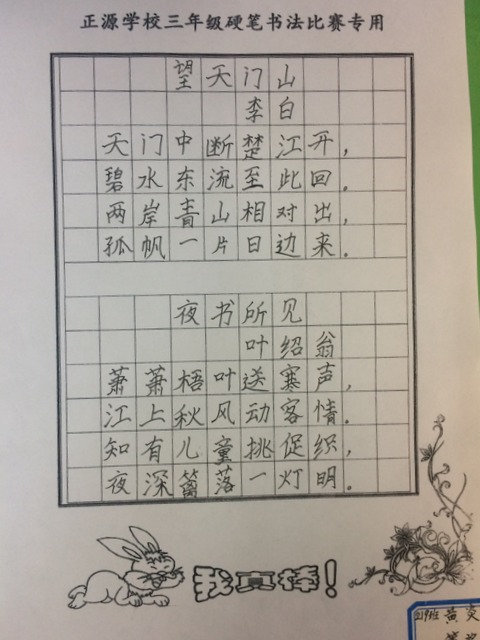 正源学校三年级硬笔书法比赛专用
望天门山
李白
天门中断楚江开，
碧水东流至此回。
两岸青山相对出，
孤帆一片日边来。
夜书所见
叶绍翁
萧萧梧叶送寒声，
江上秋风动客情。
知有儿童挑促织，
夜深篱落一灯明。
我真棒！
219班 黄